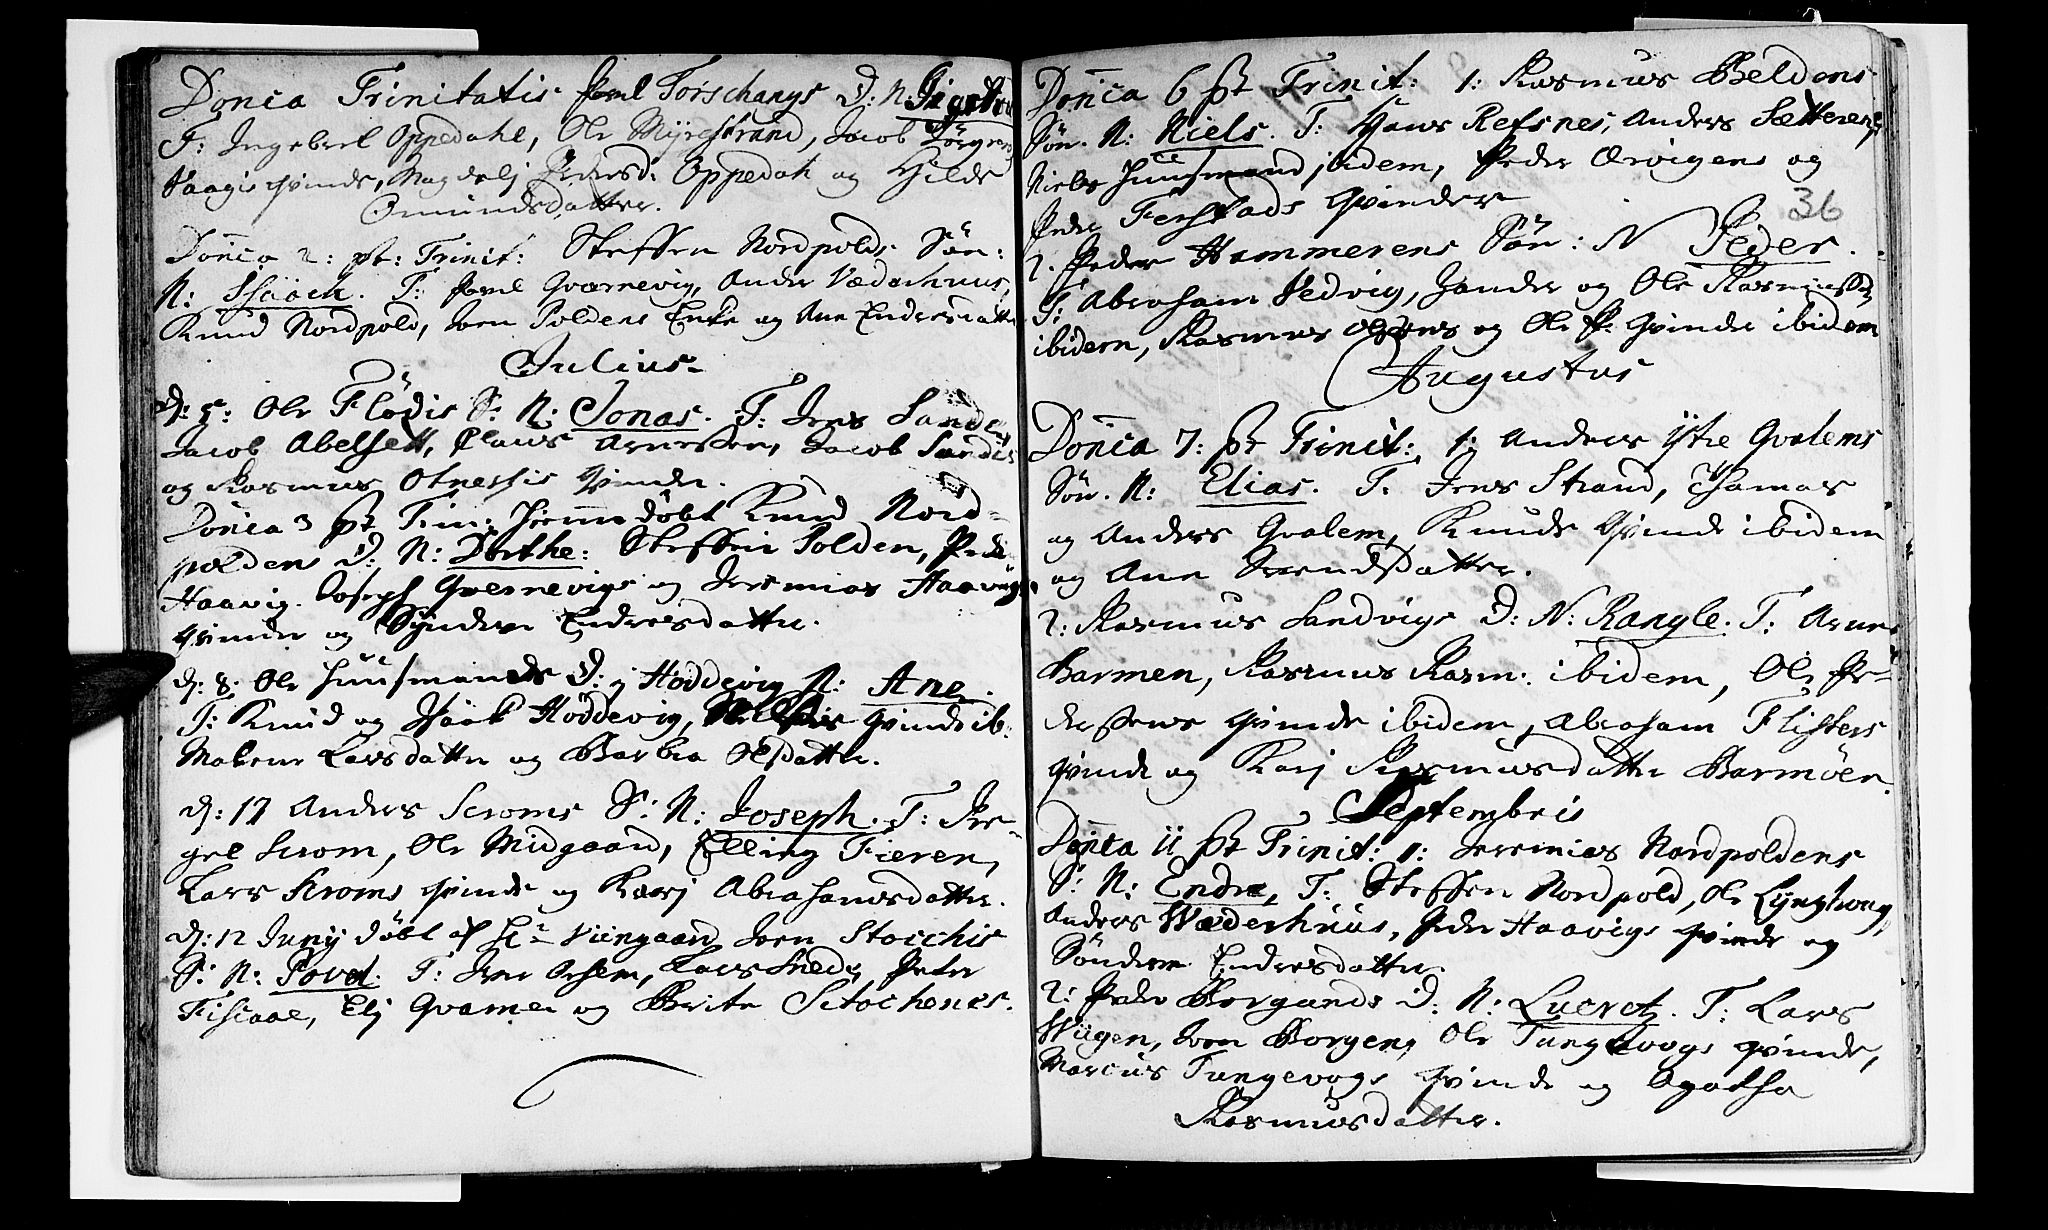 Don̄ca Trinitatis Poul Torschangs D: N:
T: Ingebrel Oppedahl, Ole Myrestrand, Jacob
Vaagis qvinde, Magdelj Pedersd: Oppedah og Hilde
Omundsdatter.
Don̄ca 2: pt: Trinit: Steffen Nordpolds Søn:
N: Isaach. T: Poul Qvarnevig, Ander Vædderhuus,
Knud Nordpold, Joen Poldens Enke og Ane Endresdatter
Julius.
d: 5: Ole Flødis S: N: Jonas. T: Jens Sande,
Jacob Abelsett, Claus Arnesen, Jacob Sandes
og Rasmus Otnessis Qvinde.
Don̄ca 3 pt Trin: Hiemmedøbt Knud Nord-
poldens D: N: Dorthe: Steffen Polden, Peder
Haavig. Joseph Qvernevigs og Jeremias Haavigs
qvinder og Synderu Endresdatter.
d: 8: Ole Huusmands D: j Hoddevig N: Ane.
T: Knud og Isaak Hoddevig, qvinde ib:
Malene Larsdatter og Barbra Olsdatter.
d: 17 Anders Scroms S: N: Joseph. T: Pre-
gel Scrom, Ole Midgaard, Elling Fieren,
Lars Scroms qvinde og Karj Abrahamsdatter.
d: 12 Junij døbt af Hr Viingaard Joen Stocchis
S: N: Povel. T: Joen Orsem, Lars Sneds, Peder
Fiscaae, Elj Qvamen og Brite Stochenes.
Don̄ca 6 pt Trinit: 1: Rasmus Beldens
Søn. N: Niels. T: Hans Refsnes, Anders Sætteren,
Niels Huusmand ibidem, Peder Ørvigens og
36
Peder Ferstads Qvinder
2. Peder Hammerens Søn: N Peder.
T: Abraham Vedvig, Zander og Ole Rasmussen
ibidem, Rasmus Olsens og Ole P: Qvinder ibidem
Augustus
Don̄ca 7: pt Trinit: 1: Anders Ytre Qvalems
Søn. N: Elias. T: Jens Strand, Thomas
og Anders Qvalem, Knuds Qvinde ibidem
og Ane Svendsdatter.
2: Rasmus Sandvigs D: N: Rangle. T: Arne
Barmen, Rasmus Rasm: ibidem, Ole Pe-
dersens qvinde ibidem, Abraham Flisters
qvinde og Karj Rasmusdatter Barmøen.
Septembris
Don̄ca 11 pt Trinit: 1: Jeremias Nordpoldens
S: N: Endre, T: Steffen Nordpold, Ole Lynghoug,
Anders Wæderhuus, Peder Haavigs qvinde og
Sønderue Endresdatter.
2: Peder Borgunds D: N: Lucretz. T: Lars
Wiigen, Joen Borgen, Ole Tungevogs qvinde,
Marcus Tungevogs qvinde og Agatha
Rasmusdatter.